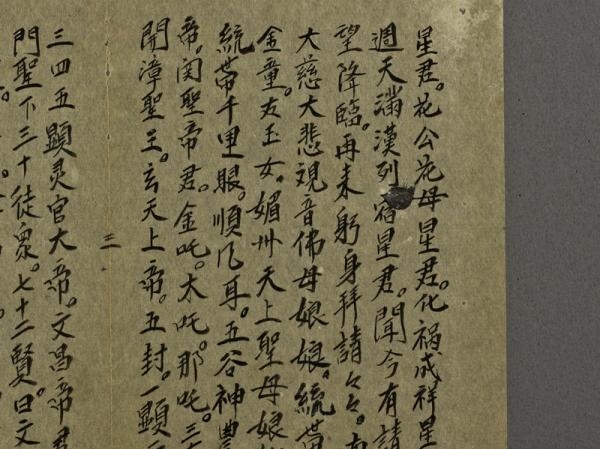 星君。花公花母星君。化禍成祥星
週天滿漢列宿星君。聞今有請
望降臨。再来躬身拜請々々。
大慈大悲視音佛母娘娘。統帶
金童。友玉女。媚州天上聖母娘
統帶千里眼。順凡耳。五谷神農
帝。関聖帝君。金吒。太吒。那吒。三
開漳聖王。玄天上帝。五封。一顯
三
三四五顯灵官大帝。文昌帝君
門聖下三十徒衆。七十二賢曰文